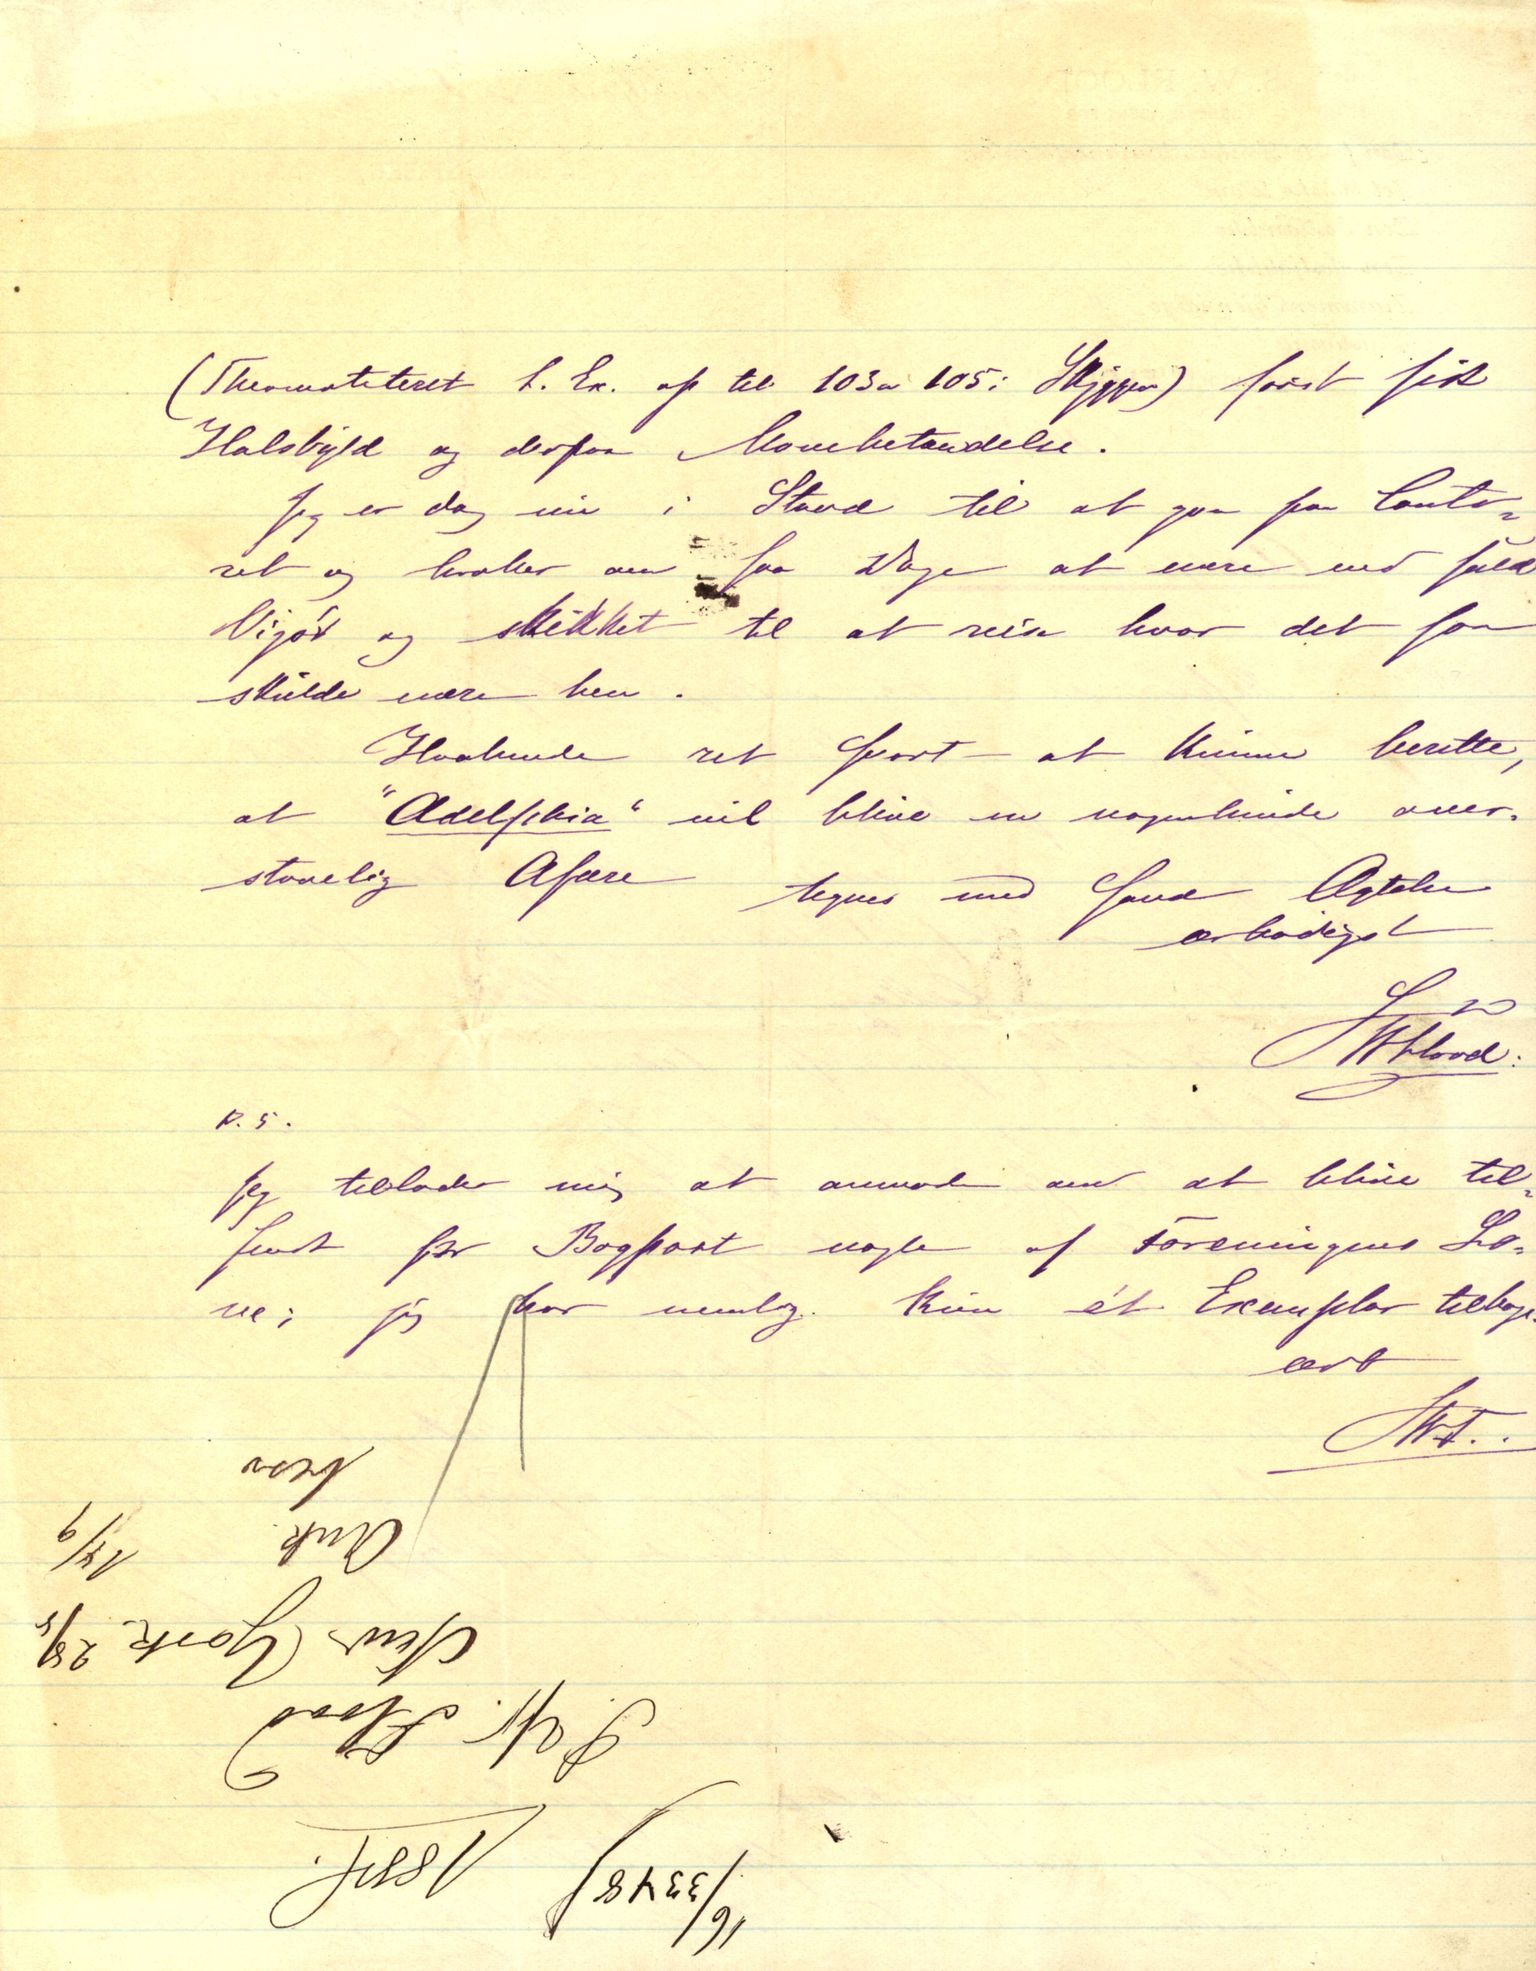 (Thermometeret f. Ex. op til 103 a 105 i Skyggen) først fik
Halsbyld og derpaa Mavebetændelse.
Jeg er dog nu i Stand til at gaa paa Conto-
ret og haaber om faa Dage at være ved fuld
Vigør og skikket til at reise hvor det saa
skulde være hen.
Haabende ret snart at kunne berette,
at "Adelphia" vil blive en nogenlunde over-
staaelig Afære
tegner med sand Agtelse
ærbødigst
S W Flood.
P. S.
Jeg tillader mig at anmode om at blive til-
sendt pr Bogpost nogle af Foreningens Lo-
ve; jeg har nemlig kun ét Exemplar tilbage.
ærb
SWF.
16/3348
1884.
S. W. Flood
New York 28/8
Ank. 14/9
besv